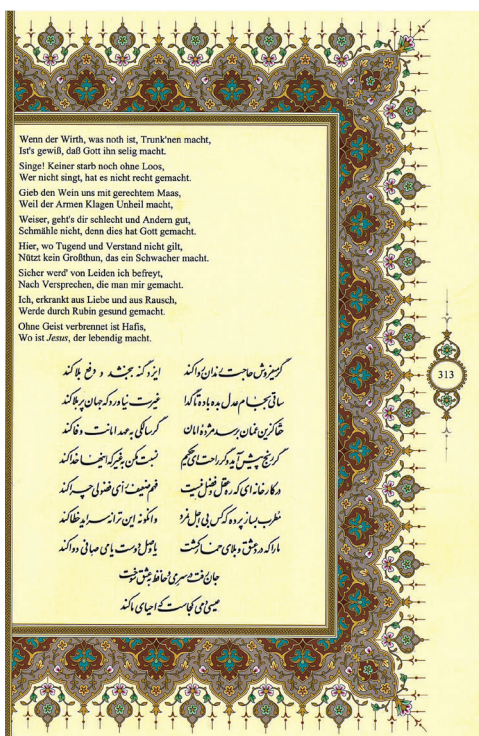 Wenn der Wirth, was noth ist, Trunk'nen macht,
Ist's gewiß, daß Gott ihn selig macht.
Singe! Keiner starb noch ohne Loos,
Wer nicht singt, hat es nicht recht gemacht.
Gieb den Wein uns mit gerechtem Maas,
Weil der Armen Klagen Unheil macht,
Weiser, geht's dir schlecht und Andern gut,
Schmähle nicht, denn dies hat Gott gemacht.
Hier, wo Tugend und Verstand nicht gilt,
Nützt kein Großthun, das ein Schwacher macht.
Sicher werd' von Leiden ich befreyt,
Nach Versprechen, die man mir gemacht.
Ich, erkrankt aus Liebe und aus Rausch,
Werde durch Rubin gesund gemacht.
Ohne Geist verbrennet ist Hafis,
Wo ist Jesus, der lebendig macht.
گر میفروش حاجت رندان روا کند ایزد گنه ببخشد و دفع بلا کند
ساقی بجام عدل بده باده تا گدا غیرت نیاورد که جهان پر بلا کند
حقا کزین غمان برسد مژده امان گر سالکی به عهد امانت وفا کند
گر رنج پیش آید و گر راحت ای حکیم نسبت مکن به غیر که اینها خدا کند
در کارخانه ای که ره عقل و فضل نیست فهم ضعیف رای فضولی چرا کند
مطرب بساز پرده که کس بی اجل نمرد وانکو نه این ترانه سراید خطا کند
ما را که درد عشق و بلای خمار کشت یا وصل دوست یا می صافی دوا کند
جان رفت در سر می و حافظ به عشق سوخت
عیسی دمی کجاست که احیای ما کند
313